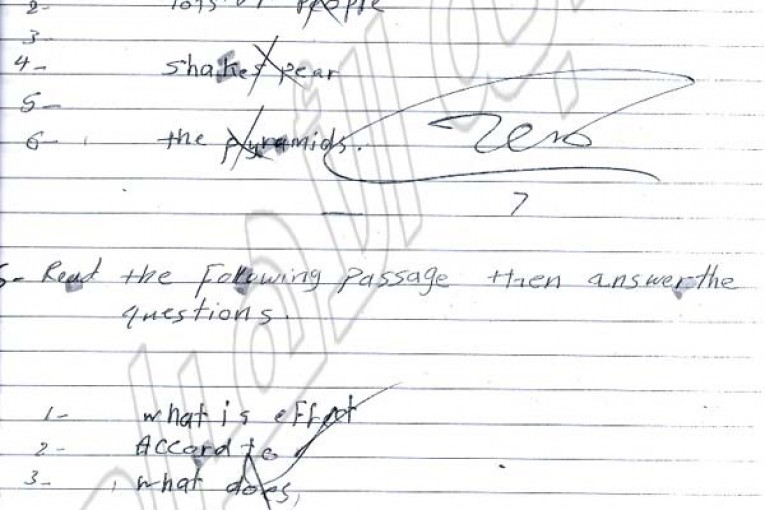 2- lots of people
3
4- shakespear
5-
6- the pyramids.
Zero
7
5- Read the Following passage then answer the
questions.
1- what is effect
2- Accord to
3- what does,